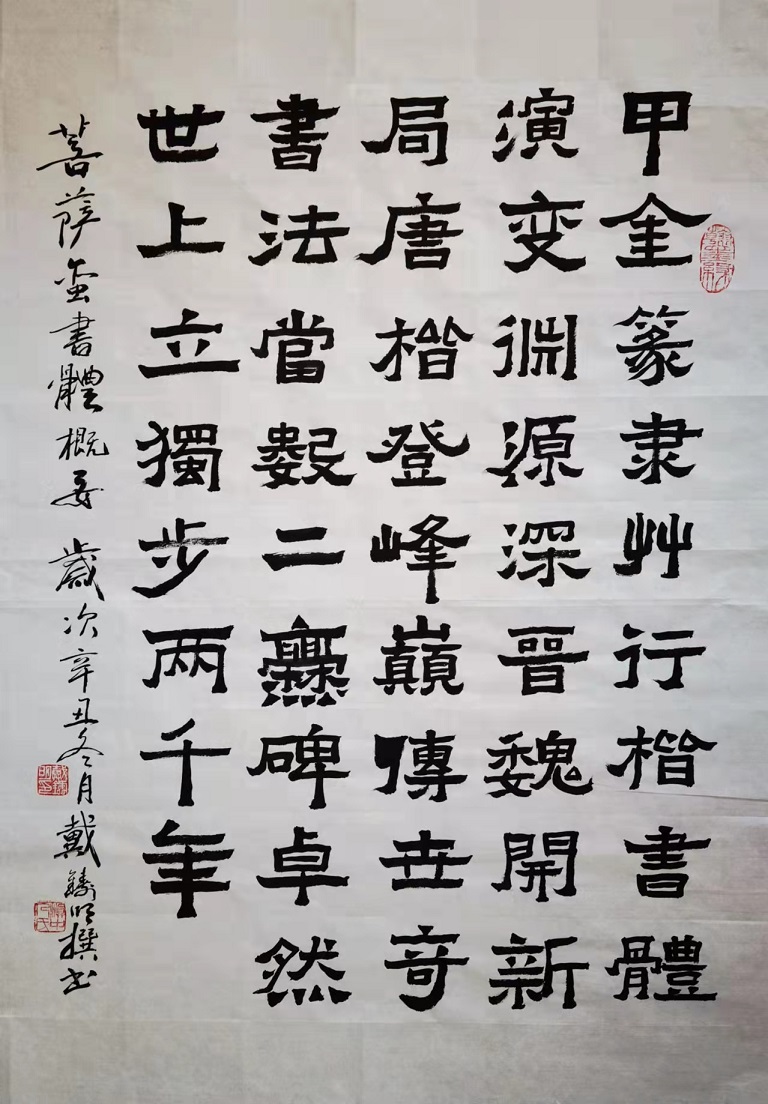 甲金篆隶艸行楷書體
演变渊源深晉魏開新
局唐楷登峰巔傳世奇
書法當數二爨碑卓然
世上立獨步两千年
菩萨蛮書體概要 歲次辛丑冬月戴鑄明撰书